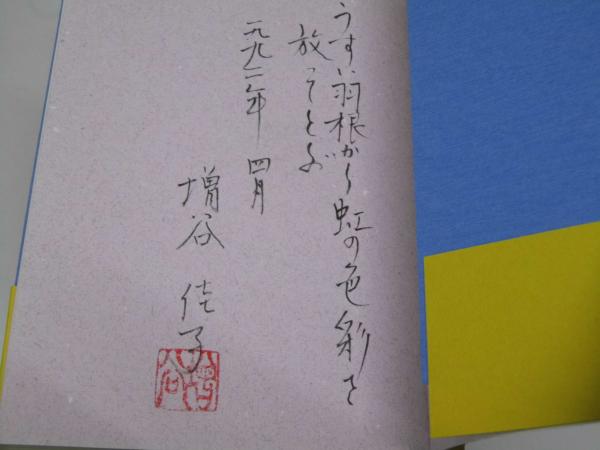 うすい羽根から虹の色彩を
放ってとぶ
一九九二年 四月
増谷 佳子
増谷